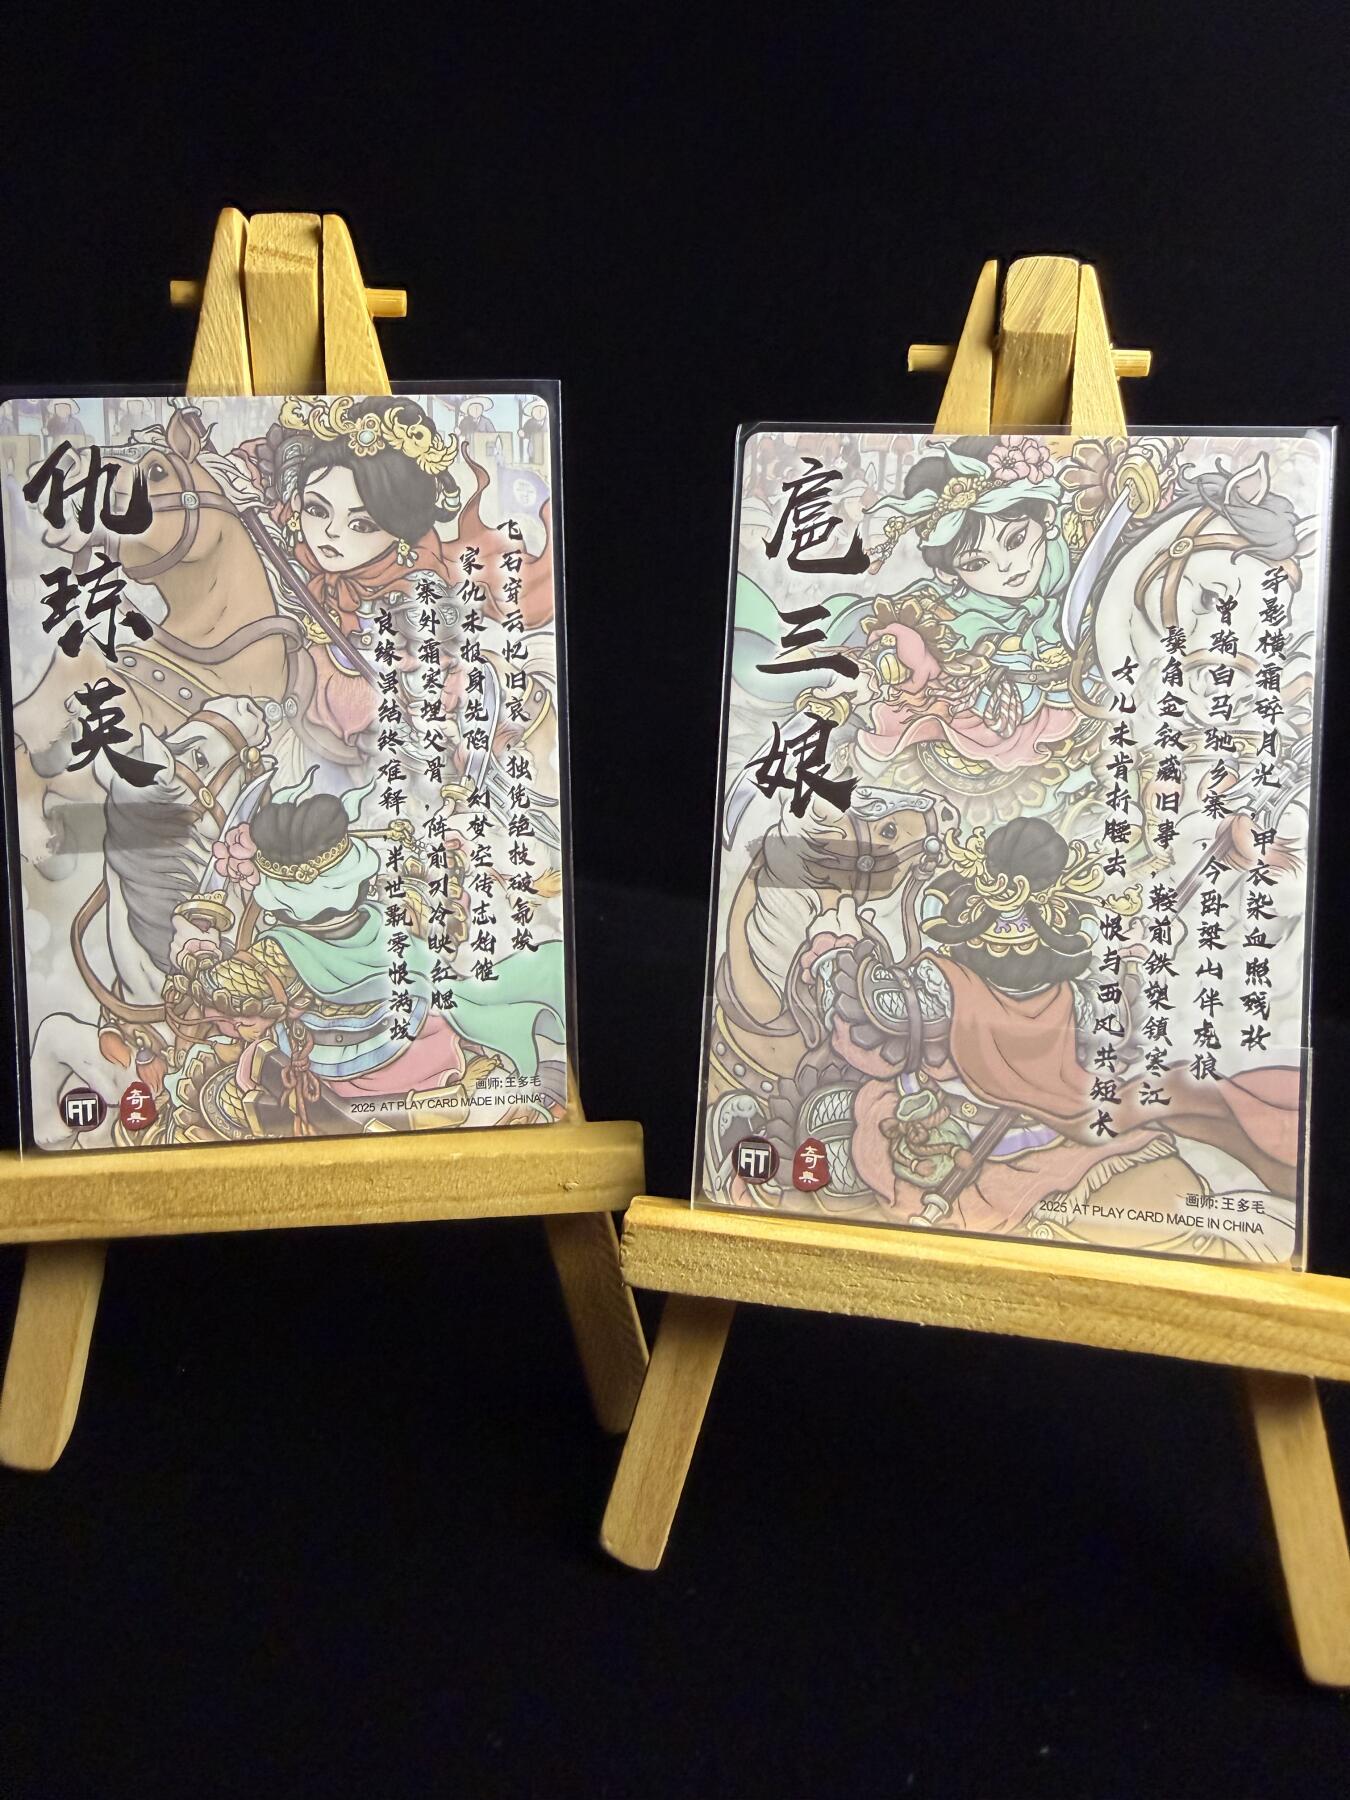 仇琼英
飞石穿云忆旧哀，独凭绝技破氛埃
家仇未报身先陷，幻梦空传志始催
寨外霜寒埋父骨，阵前刃冷映红腮
良缘虽结终难释，半世飘零恨满垓
画师:王多毛
2025 AT PLAY CARD MADE IN CHINA
AT
奇典
扈三娘
矛影横霜碎月光，甲衣染血照残妆
曾骑白马驰乡寨，今卧梁山伴虎狼
鬓角金钗藏旧事，鞍前铁槊镇寒江
女儿未肯折腰去，恨与西风共短长
画师:王多毛
2025 AT PLAY CARD MADE IN CHINA
AT
奇典